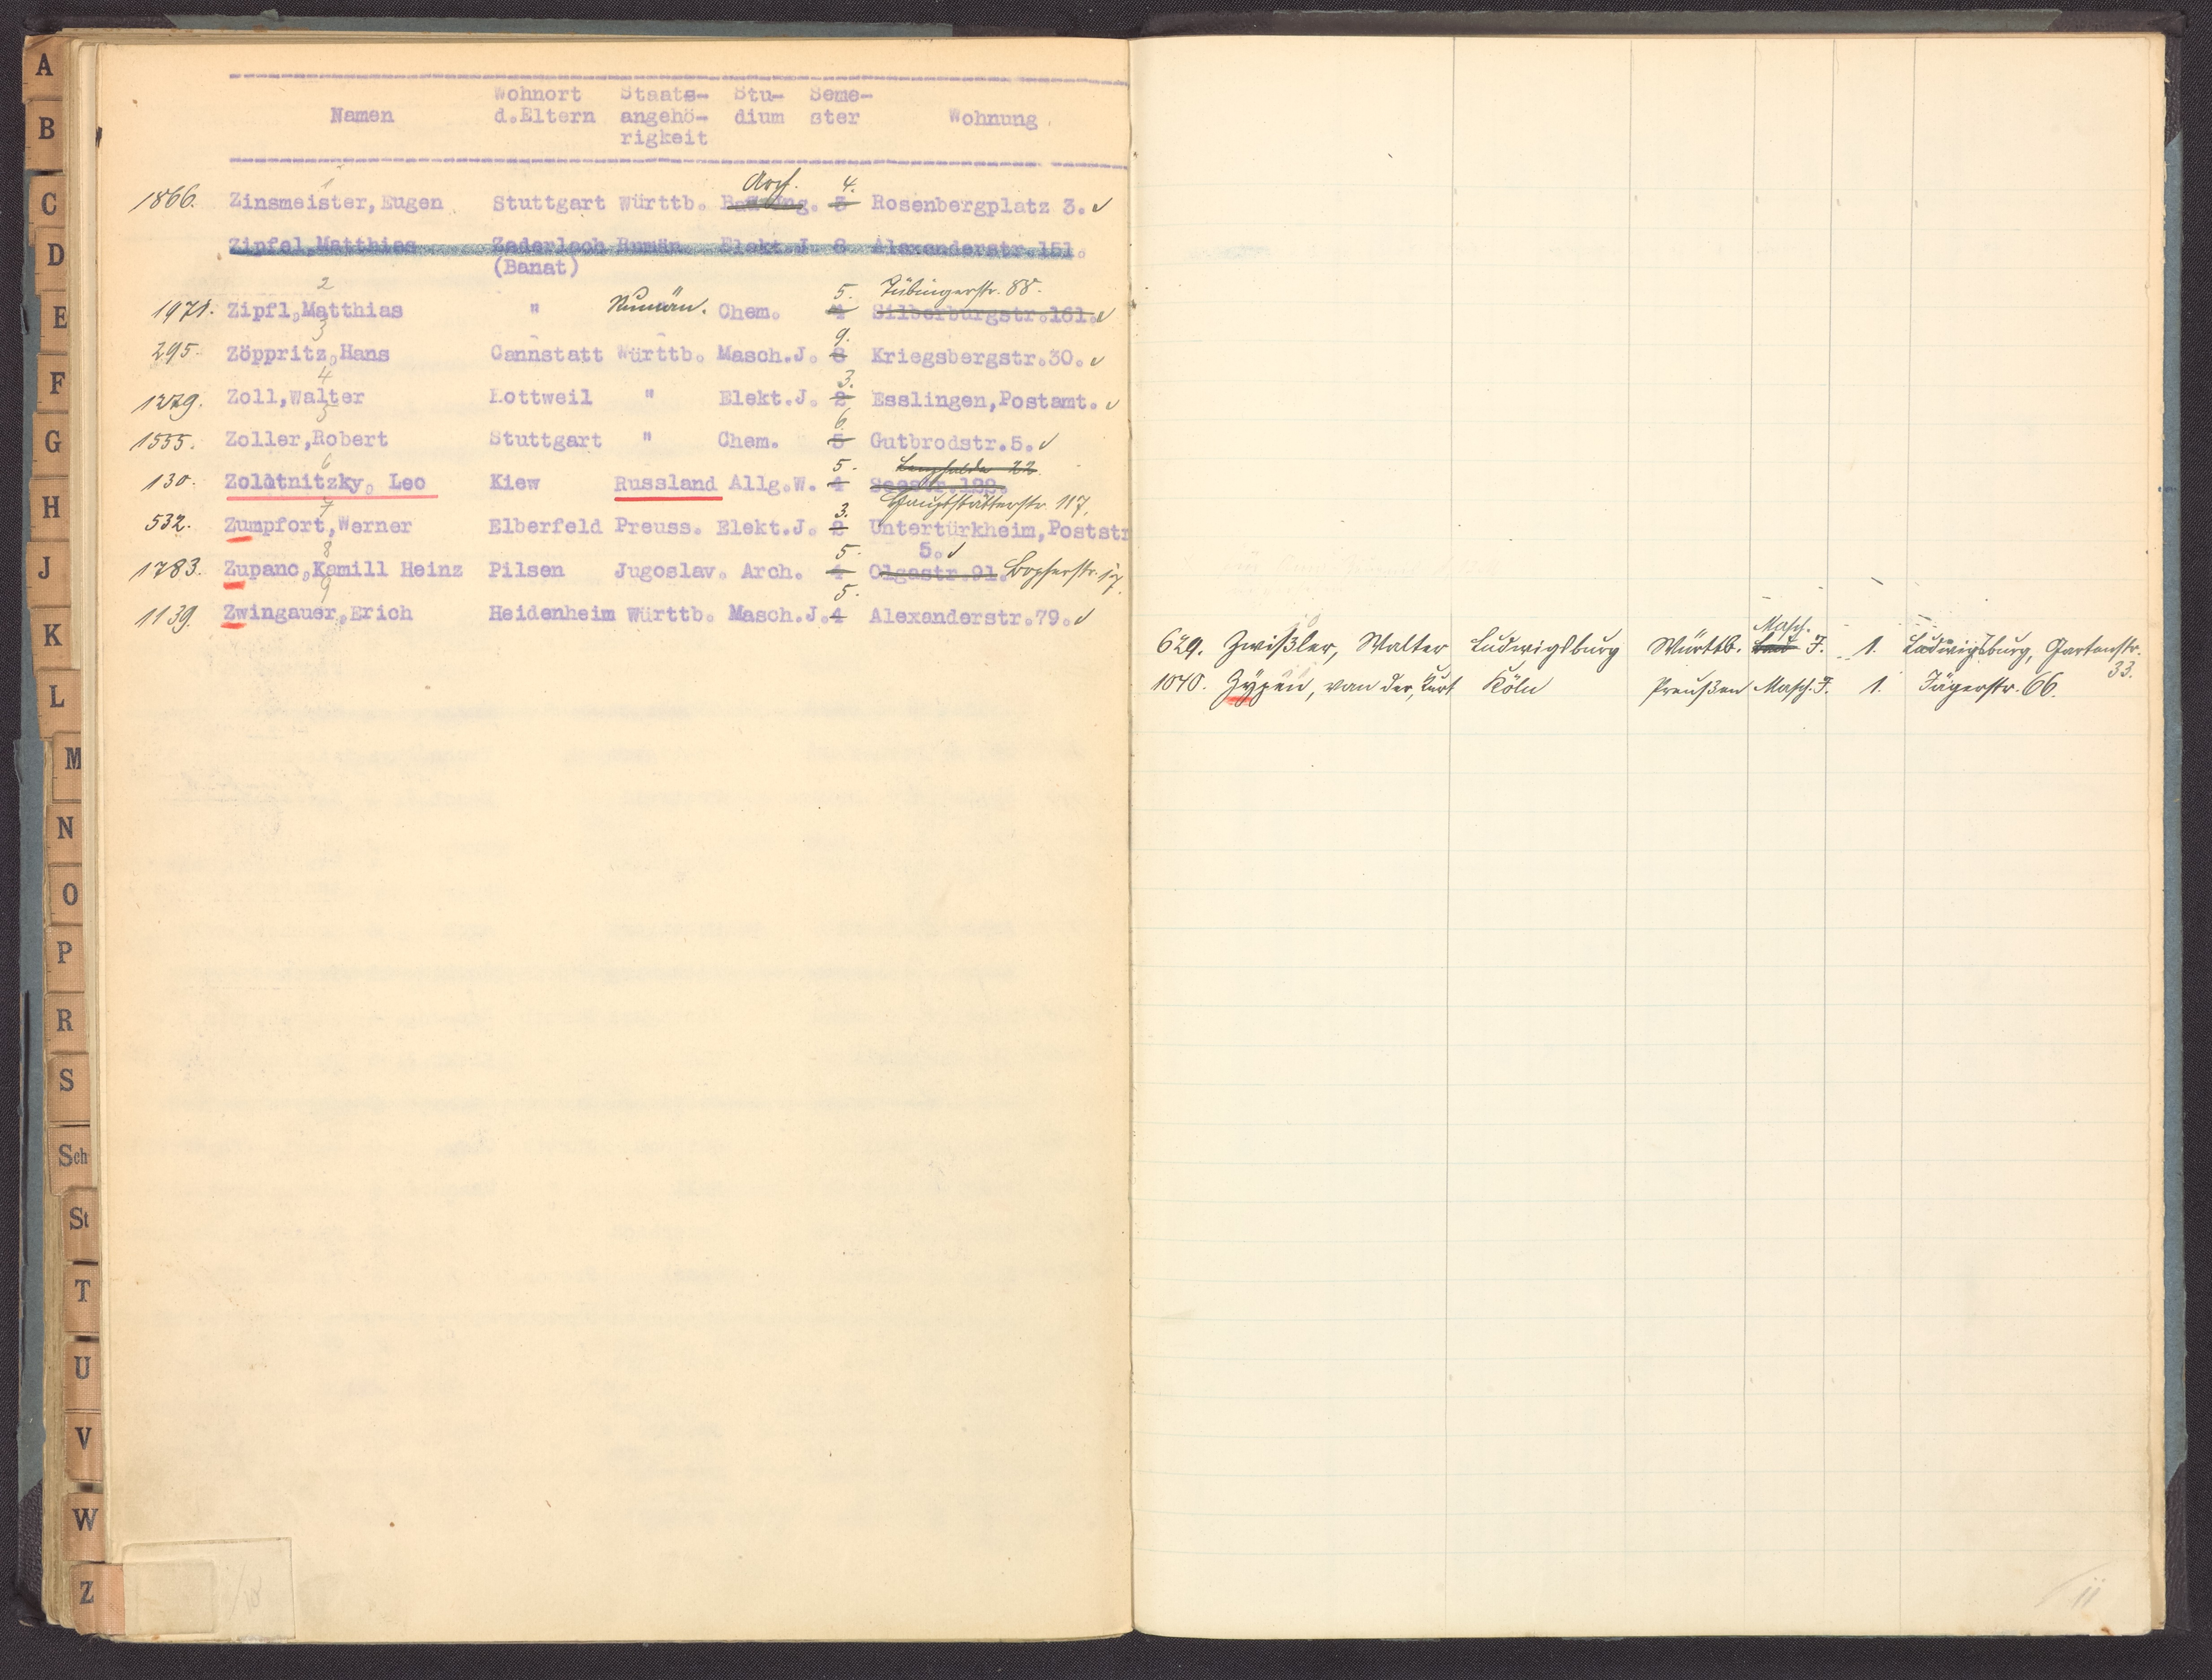 A
B
C
D
E
F
G
H
J
K
L
M
N
O
P
R
S
Sch
St
T
U
V
W
Z
Namen Wohnort d.Eltern Staats-angehö-rigkeit Stu-dium Seme-ster Wohnung
1
Arch. 4.
1866. Zinsmeister,Eugen Stuttgart Württb. Bau-Ing. 3 Rosenbergplatz 3.
Zipfel,Matthias Zederlech Rumän. Elekt.J. 8 Alexanderstr.151.
(Banat)
2 5. Tübingerstr. 88.
1971. Zipfl,Matthias " Rumän. Chem. 4 Silberburgstr.161.
3 9.
295. Zöppritz,Hans Cannstatt Württb. Masch.J. 8 Kriegsbergstr.30.
4 3.
1279. Zoll,Walter Rottweil " Elekt.J. 2 Esslingen,Postamt.
5 6.
1555. Zoller,Robert Stuttgart " Chem. 5 Gutbrodstr.5.
6 5. 22
130. Zolotnitzky, Leo Kiew Russland Allg.W. 4 Seestr.122.
7 3. Hauptstätterstr. 117.
532. Zumpfort,Werner Elberfeld Preuss. Elekt.J. 2 Untertürkheim,Poststr
8 5. 5.
1783. Zupanc,Kamill Heinz Pilsen Jugoslav. Arch. 4 Olgastr.91. Bopserstr. 17.
9 5.
1139. Zwingauer,Erich Heidenheim Württb. Masch.J. 4 Alexanderstr.79.
10 Masch.
629. Zwißler, Walter Ludwigsburg Württb. J. 1. Ludwigsburg, Gartenstr.
33.
1040. Zypen, van der, Kurt Köln Preußen Masch. J. 1. Jägerstr. 66.
11